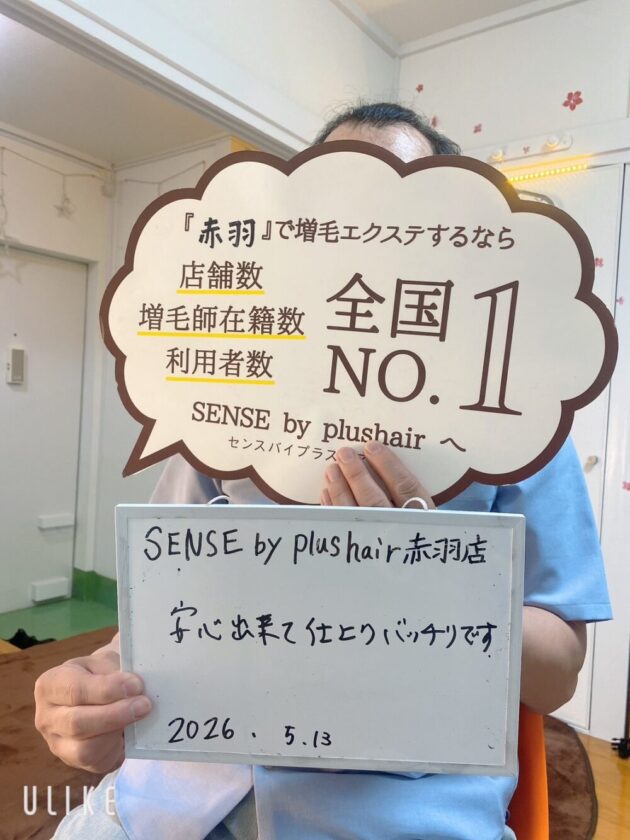 『赤羽』で増毛エクステするなら
店舗数
増毛師在籍数
利用者数
全国
NO.1
SENSE by plushair へ
センスバイプラス
SENSE by plushair赤羽店
安心出来て仕上りバッチリです
2026. 5.13
ULIKE